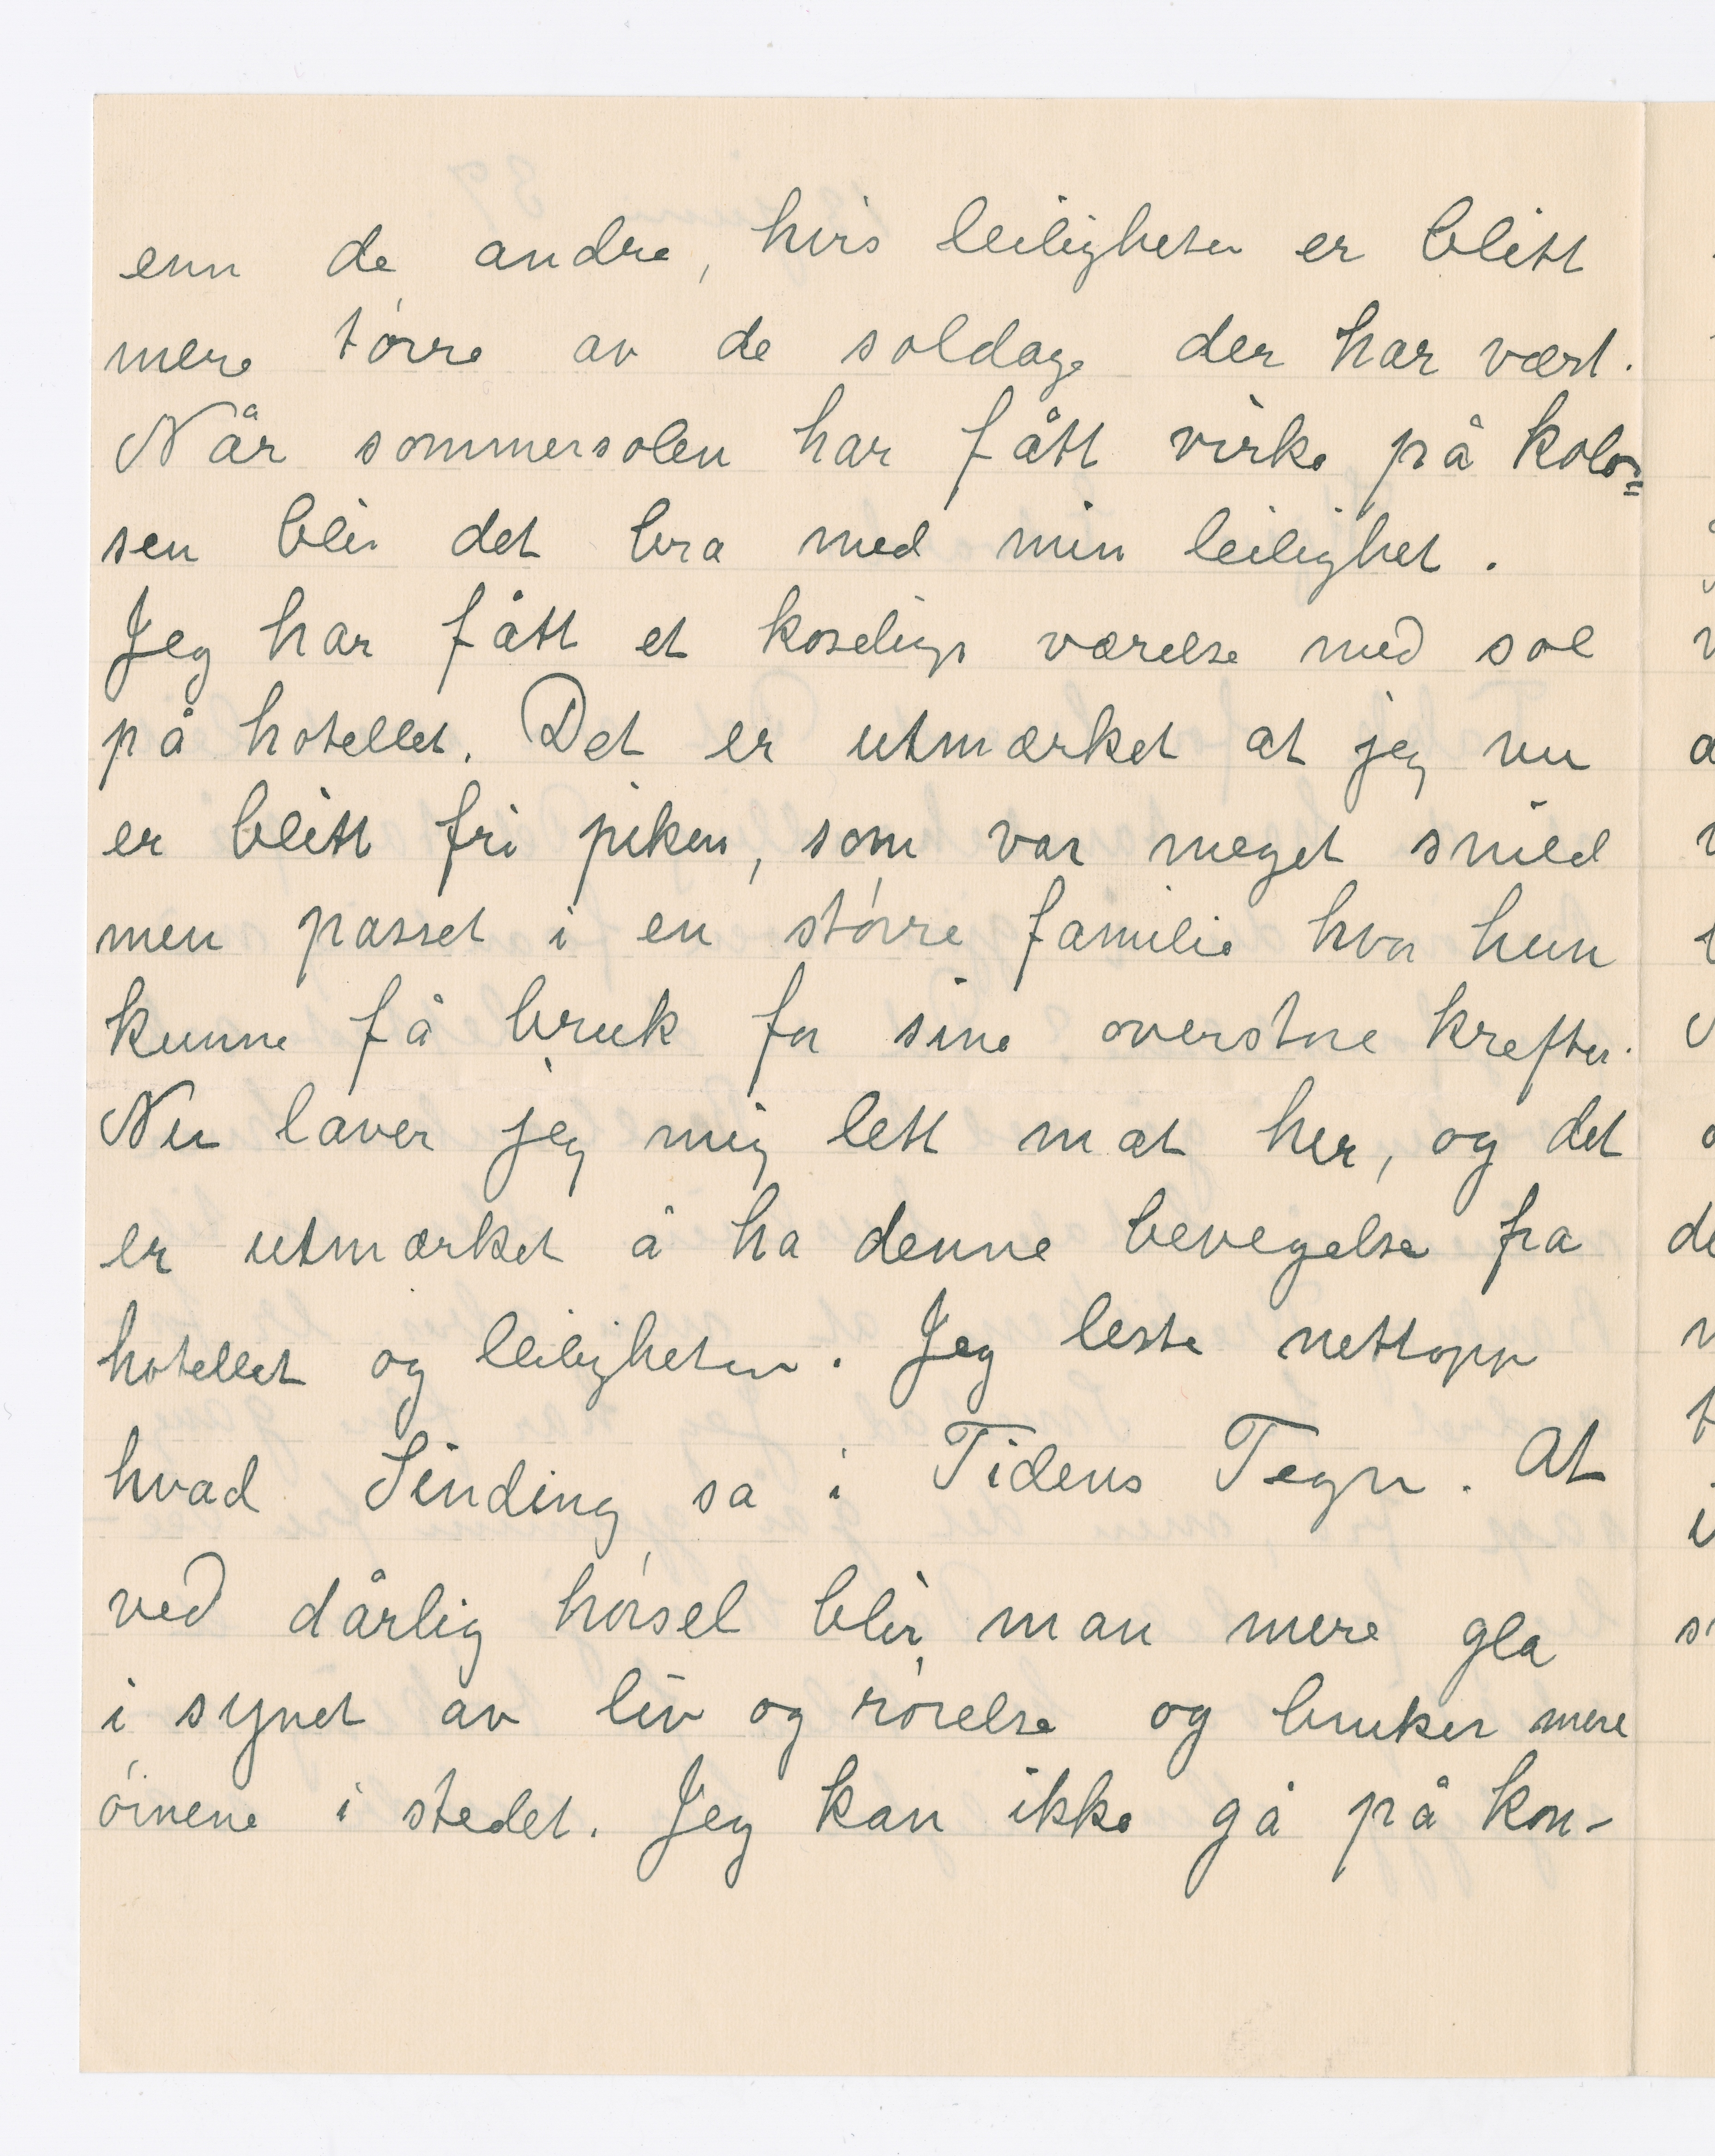 enn de andre, hvis leiligheter er blitt
mere tørre av de soldage der har vært.
Når sommersolen har fått virke på kolos=
sen blir det bra med min leilighet.
Jeg har fått et koselig værelse med sol
på hotellet. Det er utmærket at jeg nu
er blitt fri piken, som var meget snild
men passet i en større familie hvor hun
kunne få bruk for sine overstore krefter.
Nu laver jeg mig lett mat her, og det
er utmærket å ha denne bevegelse fra
hotellet og leiligheten. Jeg leste nettopp
hvad Sinding sa i Tidens Tegn. At
ved dårlig hørsel blir man mere gla
i synet av liv og rørelse og bruker mere
øinene i stedet. Jeg kan ikke gå på kon-